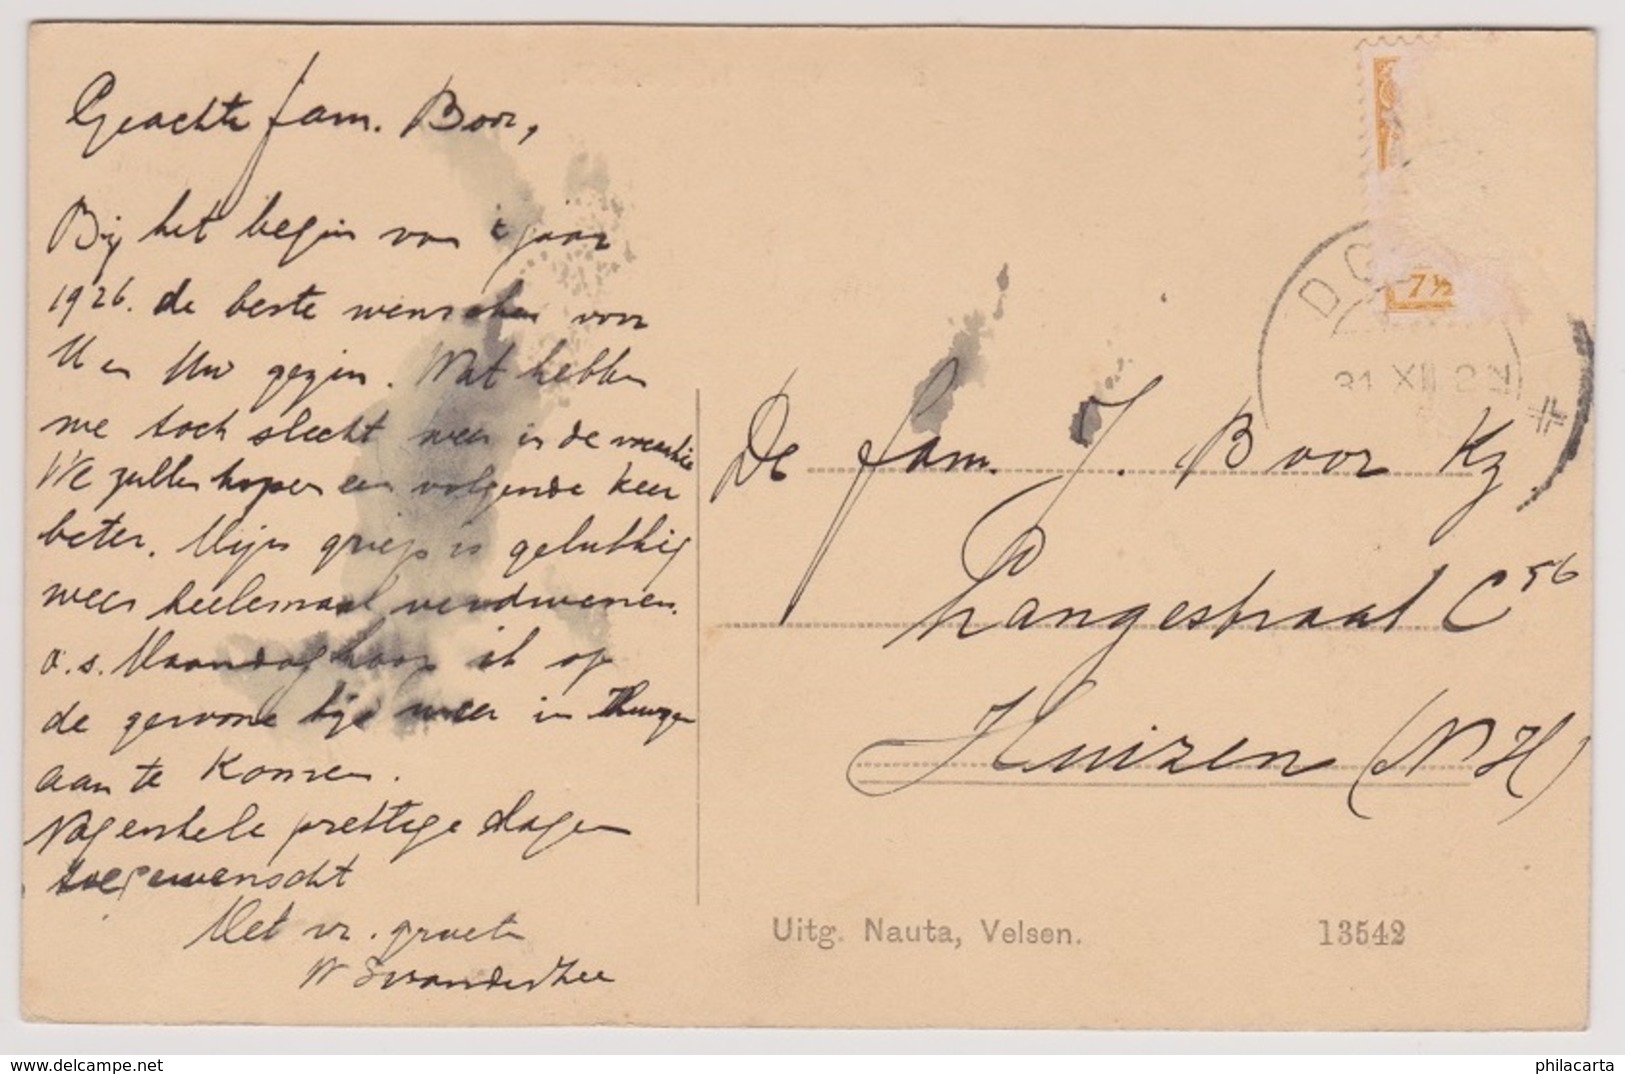 Geachte fam. Boor,
Bij het begin van 't jaar
1926. de beste wenschen voor
U en Uw gezin. Wat hebben
we toch slecht weer in de vacantie
We zullen hopen een volgende keer
beter. Mijn griep is gelukkig
weer heelemaal verdwenen.
a.s. Maandag hoop ik op
de gewone tijd weer in Huizen
aan te komen.
Nog enkele prettige dagen
toegewenscht
Met vr. groeten
W
De fam. J. Boor Kz
Langestraat C 56
Huizen (N H)
7½
31 XII
Uitg. Nauta, Velsen.
13542
www.delcampe.net
philacarta